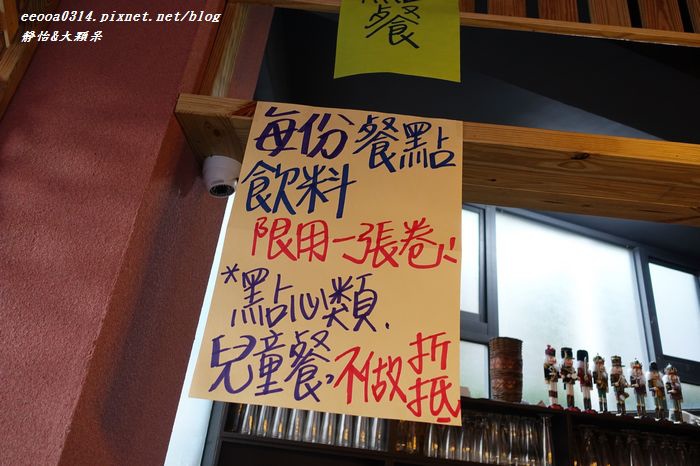 eeooa0314.pixnet.net/blog
靜怡&大顆呆
餐
每份餐點
飲料
限用一張卷!!
*點心類.
兒童餐,不做折抵